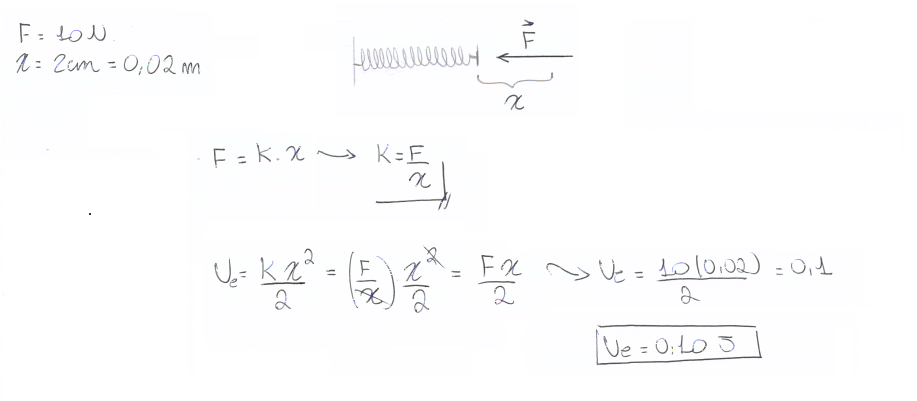 F = 10 N
x = 2cm = 0,02 m
F
x
F = K . x ⤳ K = F/x
Ue = K x²/2 = (F/x) x²/2 = Fx/2 ⤳ Ue = 10(0,02)/2 = 0,1
Ue = 0,10 J